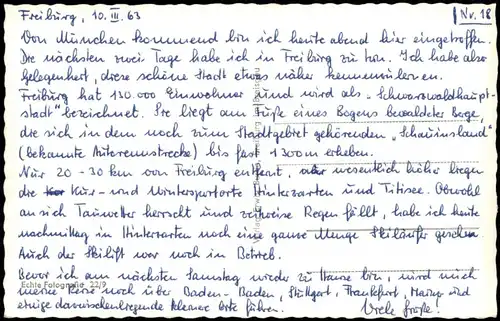 Freiburg, 10. III. 63
Nr. 18
Von München kommend bin ich heute abend hier eingetroffen.
Die nächsten zwei Tage habe ich in Freiburg zu tun. Ich habe also
Gelegenheit, diese schöne Stadt etwas näher kennenzulernen.
Freiburg hat 130.000 Einwohner und wird als „Schwarzwaldhaupt-
stadt" bezeichnet. Sie liegt am Füße eines Bogens bewaldeter Berge,
die sich in dem noch zum Stadtgebiet gehörenden „Schauinsland"
(bekannte Autorennstrecke) bis fast 1300 m erheben.
Nur 20 - 30 km von Freiburg entfernt, aber wesentlich höher liegen
die Kur- und Wintersportorte Hinterzarten und Titisee. Obwohl
an sich Tauwetter herrscht und zeitweise Regen fällt, habe ich heute
nachmittag in Hinterzarten noch eine ganze Menge Skiläufer gesehen.
Auch der Skilift war noch in Betrieb.
Bevor ich am nächsten Samstag wieder zu Hause bin, wird mich
Echte Fotografie 22/9
meine Reise noch über Baden-Baden, Stuttgart, Frankfurt, Mainz und
einige dazwischenliegende kleinere Orte führen. Viele Grüße!